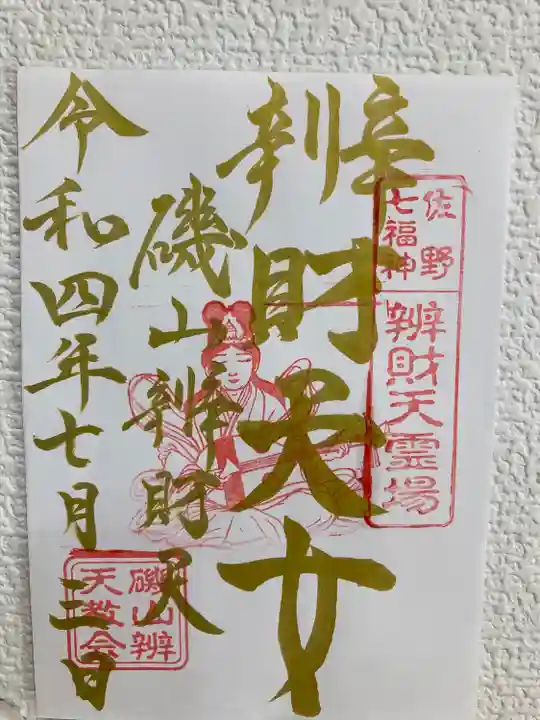 佐野
七福神
辨財天霊場
辨財天女
磯山辨財天
令和四年七月三日
磯山辨
天教会